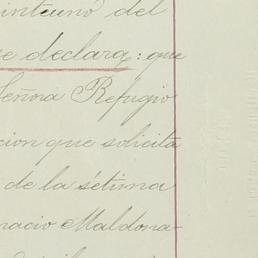 intiuno del
e declara: que
Señora Refugio
cion que solicita
de la sétima
nacio Maldona